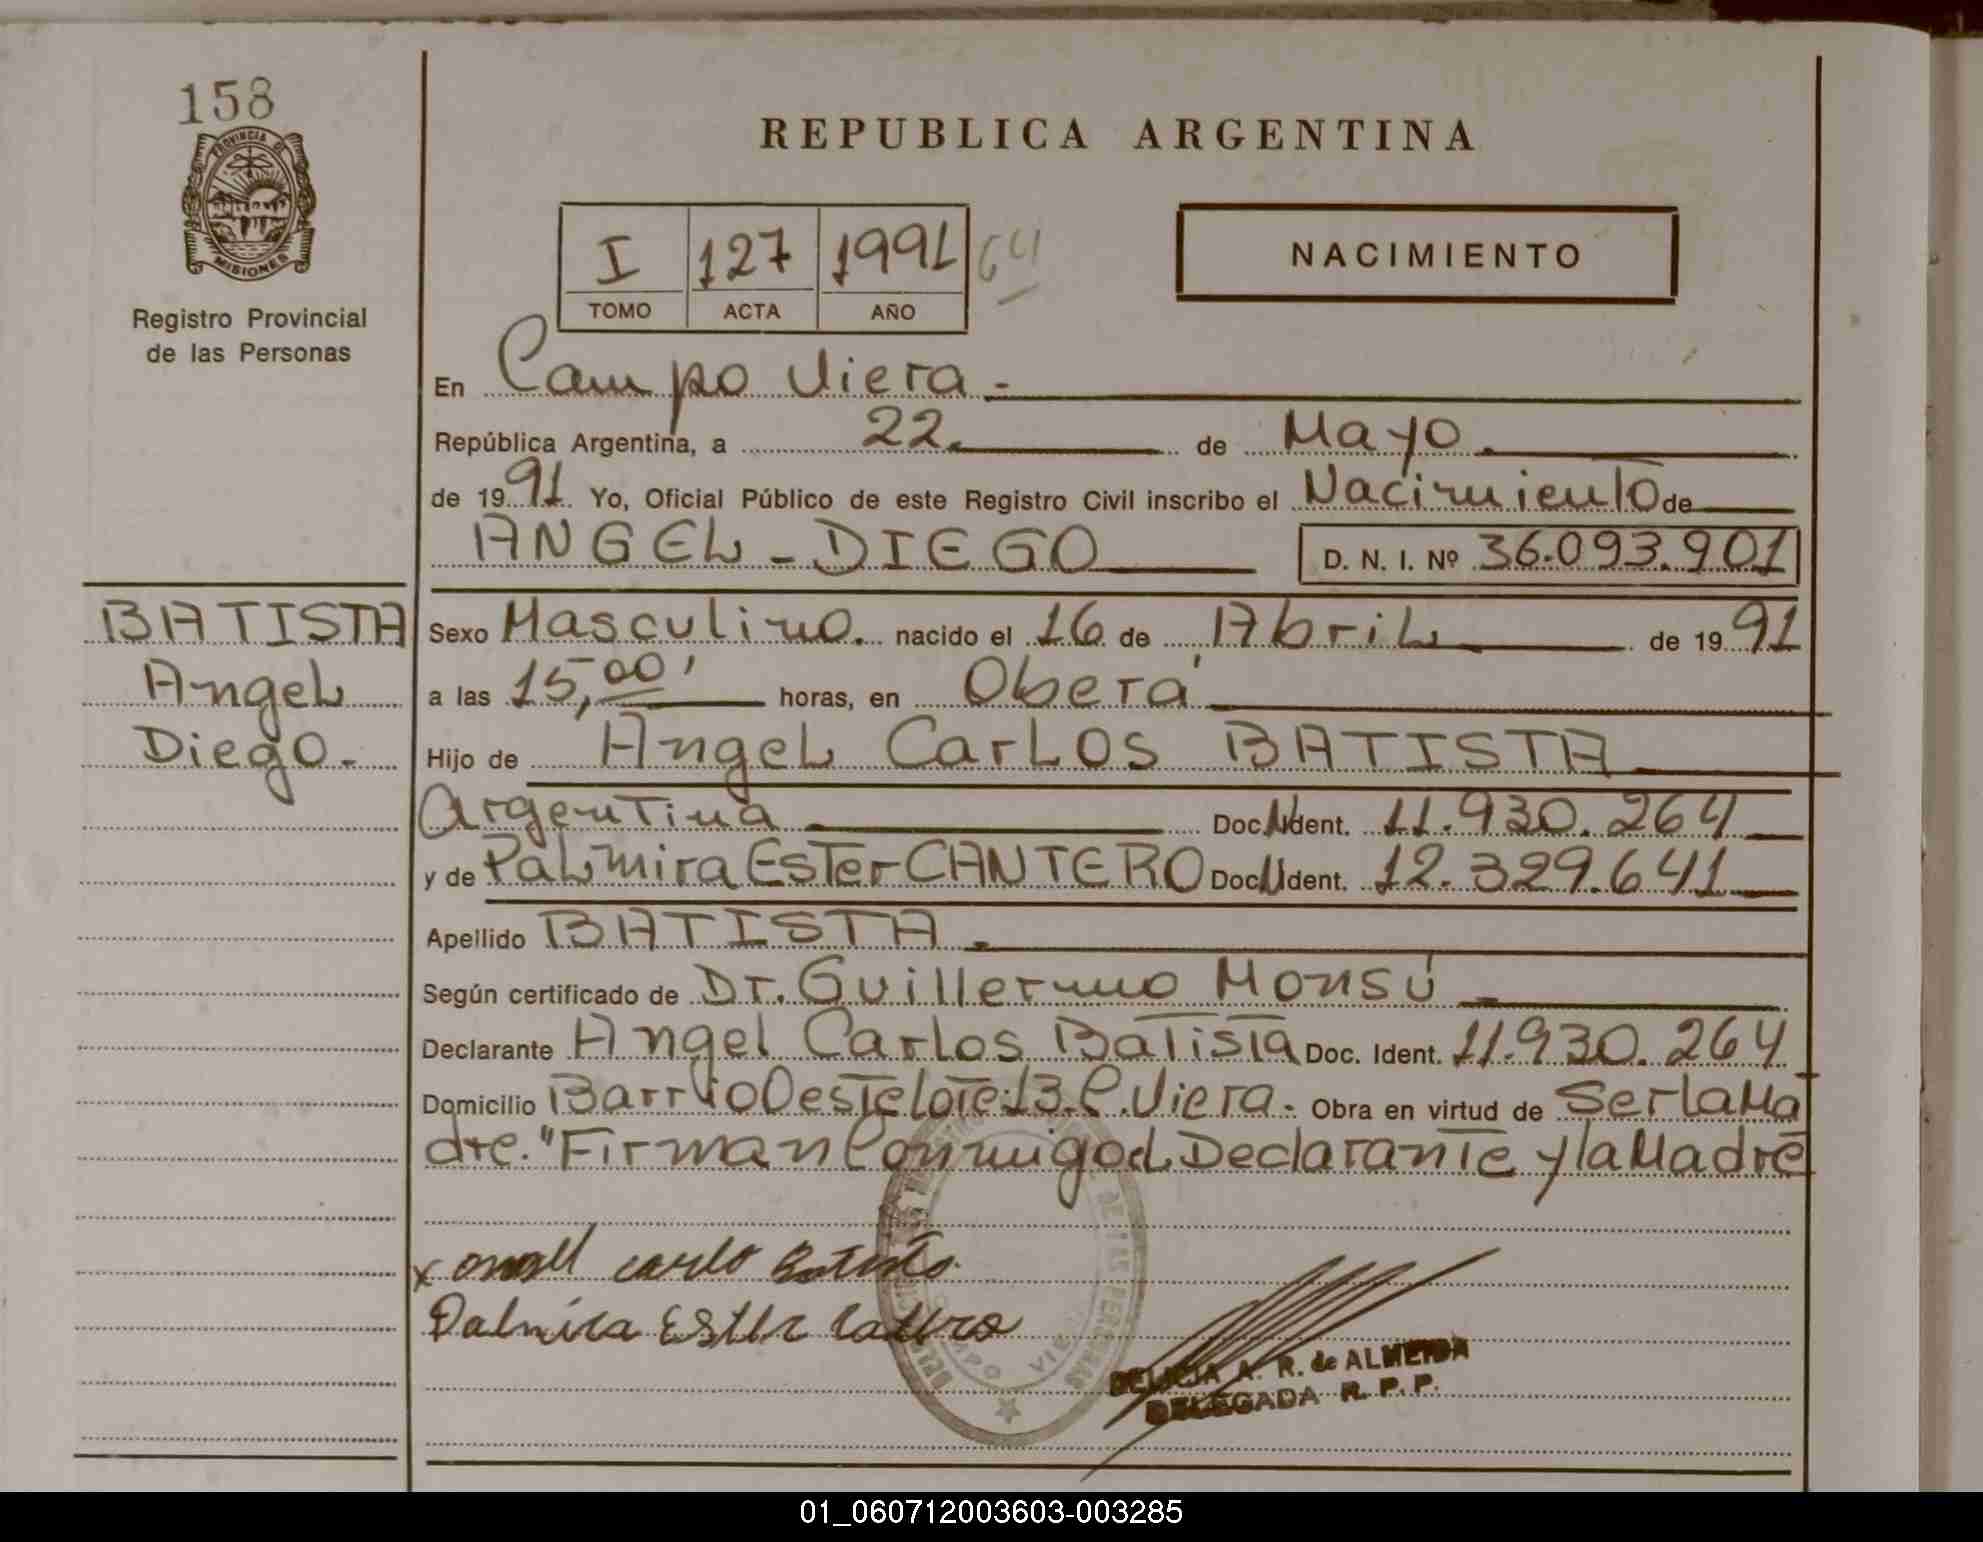 158
PROVINCIA DE
MISIONES
Registro Provincial
de las Personas
REPUBLICA ARGENTINA
I 127 1991 64
TOMO ACTA AÑO
NACIMIENTO
En Campo Viera.-
República Argentina, a 22. de Mayo.
de 1991. Yo, Oficial Público de este Registro Civil inscribo el Nacimiento de
ANGEL - DIEGO D. N. I. Nº 36.093.901
BATISTA
Angel
Diego.-
Sexo Masculino. nacido el 16 de Abril de 1991
a las 15,00' horas, en Oberá
Hijo de Angel Carlos BATISTA
Argentina Doc. Ident. 11.930.264
y de Palmira Ester CANTERO Doc. Ident. 12.329.641
Apellido BATISTA.
Según certificado de Dr. Guillermo Monsú
Declarante Angel Carlos Batista Doc. Ident. 11.930.264
Domicilio Barrio Oeste Lote:13.C.Viera. Obra en virtud de Ser la Ma
dre. "Firman Conmigo el Declarante y la Madre
x angel carlo Batista
Palmira Ester Cantero
DELICIA A. R. de ALMEIDA
DELEGADA R. P. P.
01_060712003603-003285